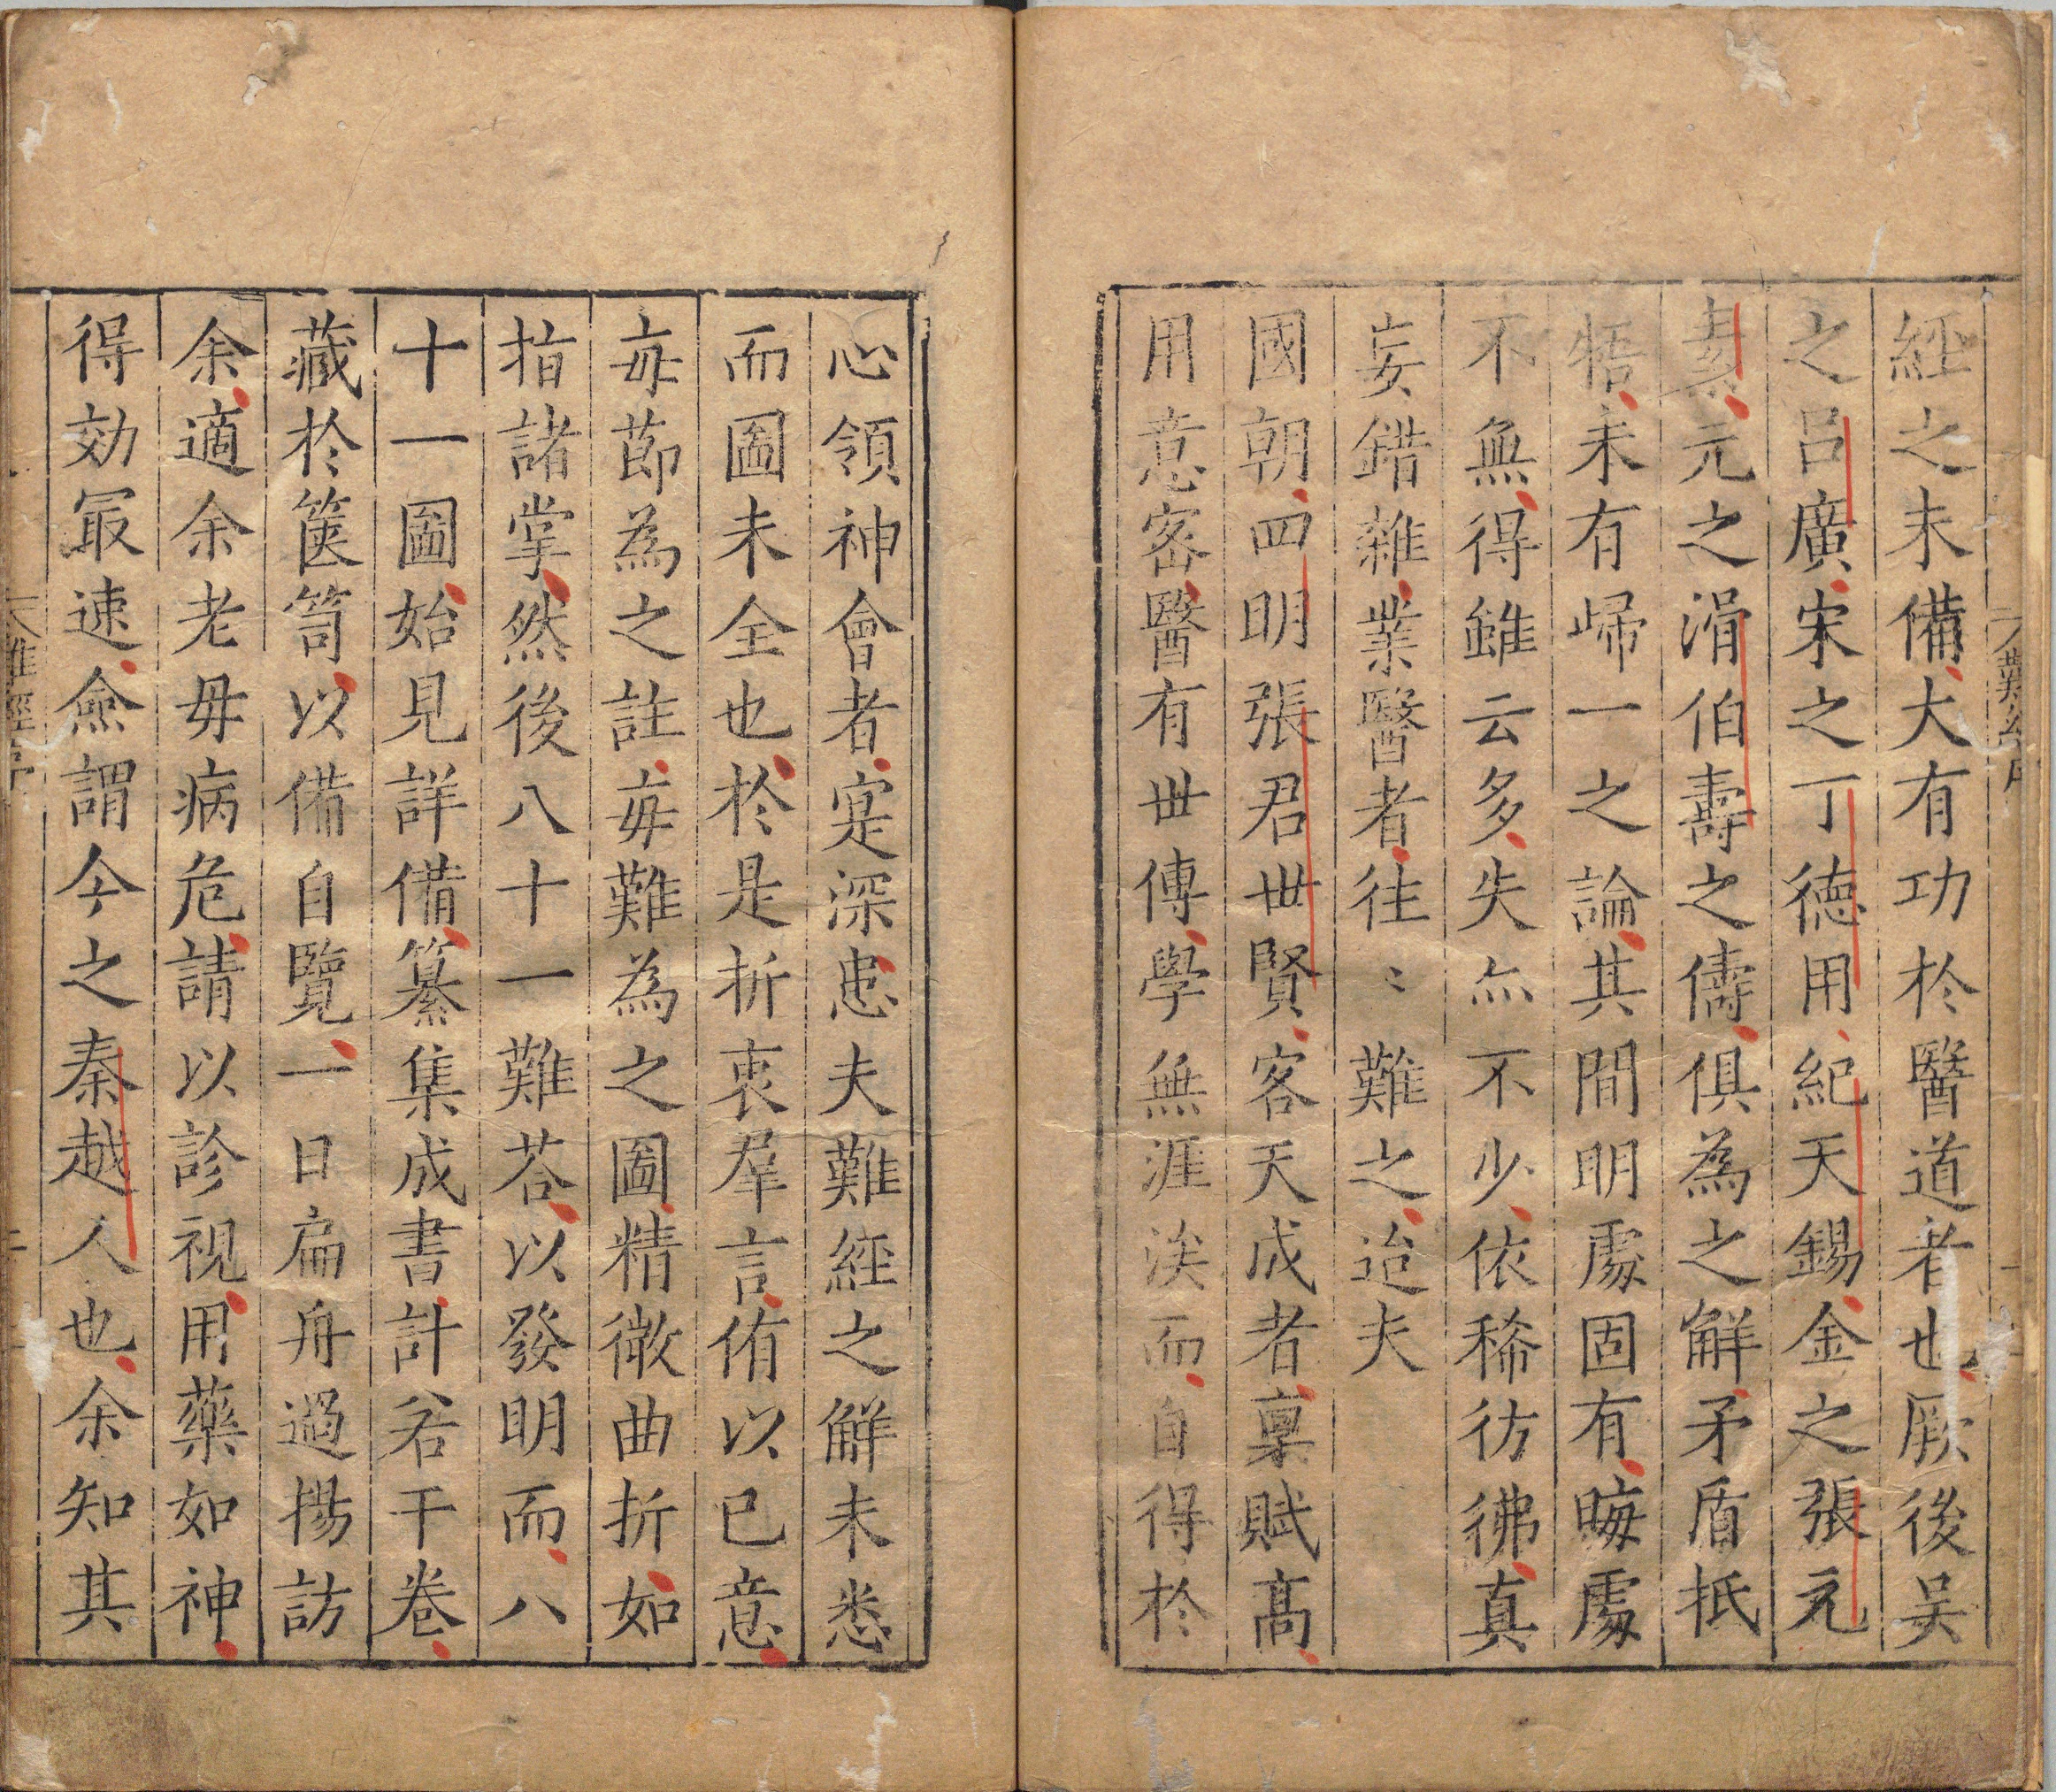 經之未備大有功於醫道者也厥後吴
之吕廣宋之丁德用紀天錫金之張元
素元之滑伯壽之儔俱為之解矛盾抵
牾未有歸一之論其間明處固有晦處
不無得雖云多失亦不少依稀彷彿真
妄錯雜業醫者往〻難之迨夫
國朝四明張君世賢客天成者稟賦高
用意密醫有世傳學無涯涘而自得於
心領神會者寔深患夫難經之解未悉
而圖未全也於是折衷羣言侑以已意
每節為之註每難為之圖精微曲折如
指諸掌然後八十一難荅以發明而八
十一圖始見詳備纂集成書計若干卷
藏於篋笥以備自覽一日扁舟過揚訪
余適余老母病危請以診視用藥如神
得効㝡速僉謂今之秦越人也余知其
難經序